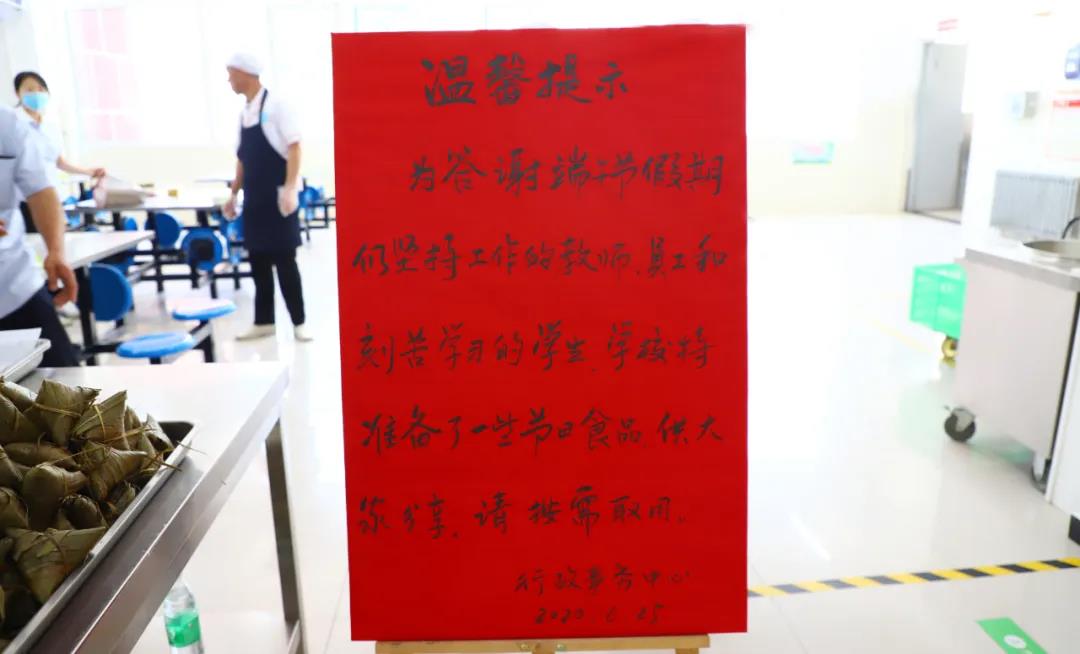 温馨提示
为答谢端午节假期
仍坚持工作的教师、员工和
刻苦学习的学生,学校特
准备了一些节日食品,供大
家分享,请按需取用。
行政事务中心
2020.6.25